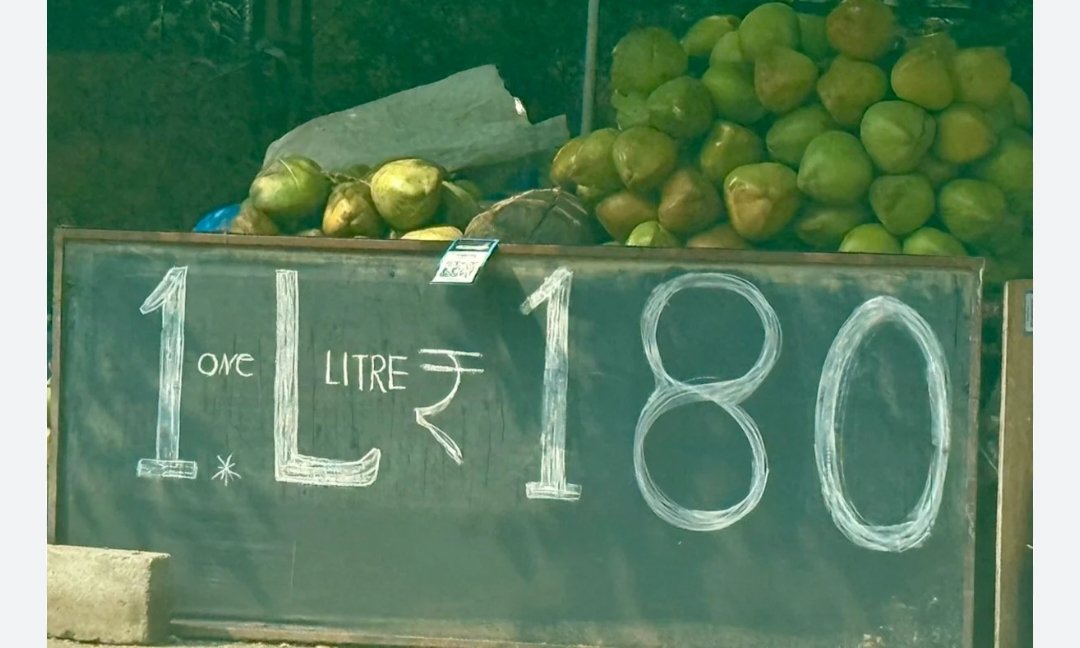 1.* ONE L LITRE ₹180